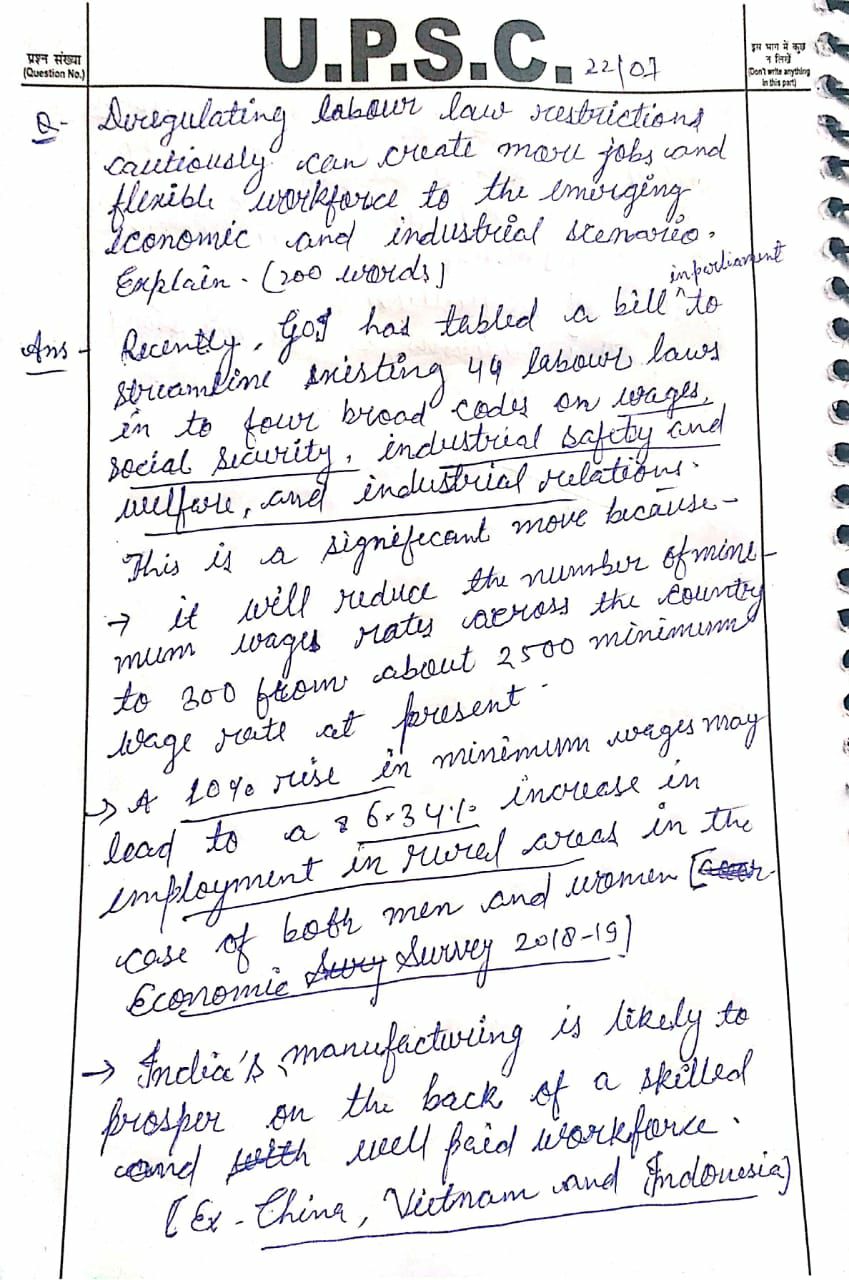 U.P.S.C.
प्रश्न संख्या
(Question No.)
इस भाग में कुछ
न लिखें
(Don't write anything
in this part)
22/07
Q- Deregulating labour law restrictions
cautiously can create more jobs and
flexible workforce to the emerging
economic and industrial scenario.
Explain - (200 words)
in parliament
Ans - Recently, GoI has tabled a bill ^ to
streamline existing 44 labour laws
in to four broad codes on wages,
social security, industrial safety and
welfare, and industrial relations.
This is a significant move because -
→ it will reduce the number of mini-
mum wages rates across the country
to 300 from about 2500 minimum
wage rate at present.
→ A 10% rise in minimum wages may
lead to a 6.34% increase in
employment in rural areas in the
case of both men and women [
Economic Survey 2018-19]
→ India's manufacturing is likely to
prosper on the back of a skilled
and well paid workforce.
[Ex - China, Vietnam and Indonesia]